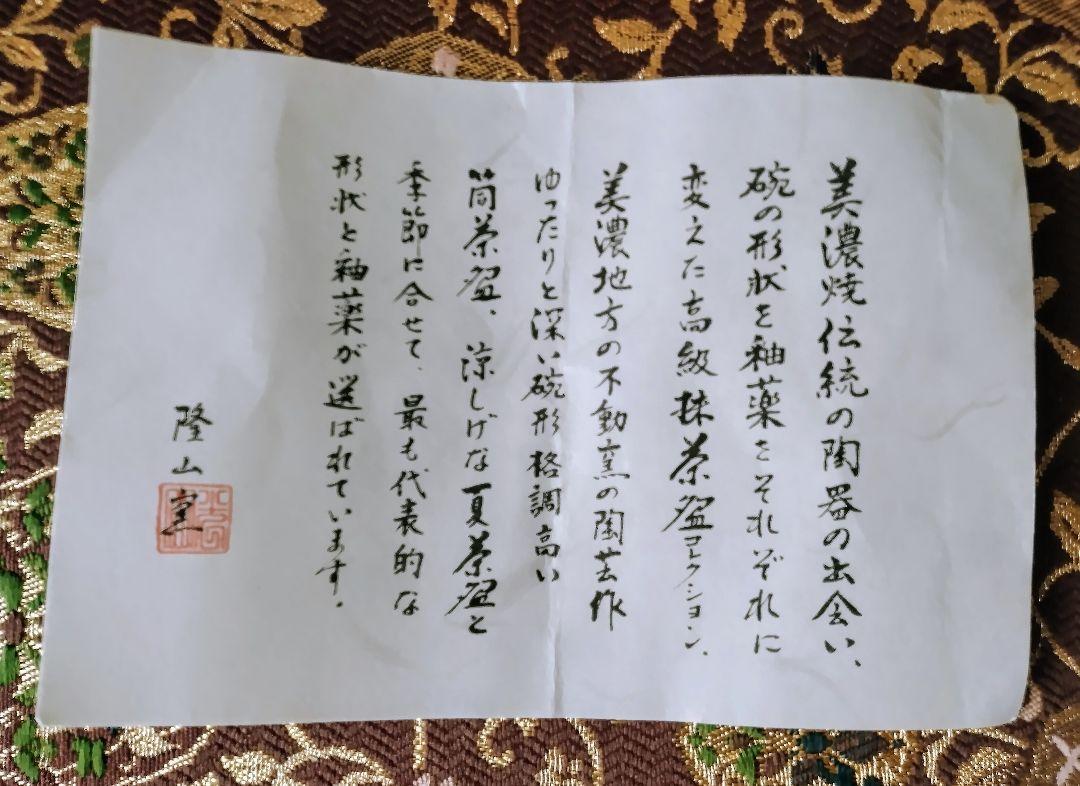 美濃焼伝統の陶器の出会い、
碗の形状を釉薬をそれぞれに
変えた高級抹茶盌コレクション、
美濃地方の不動窯の陶芸作
ゆったりと深い碗形格調高い
筒茶盌、涼しげな夏茶盌と
季節に合せて、最も代表的な
形状と釉薬が選ばれています。
隆山窯